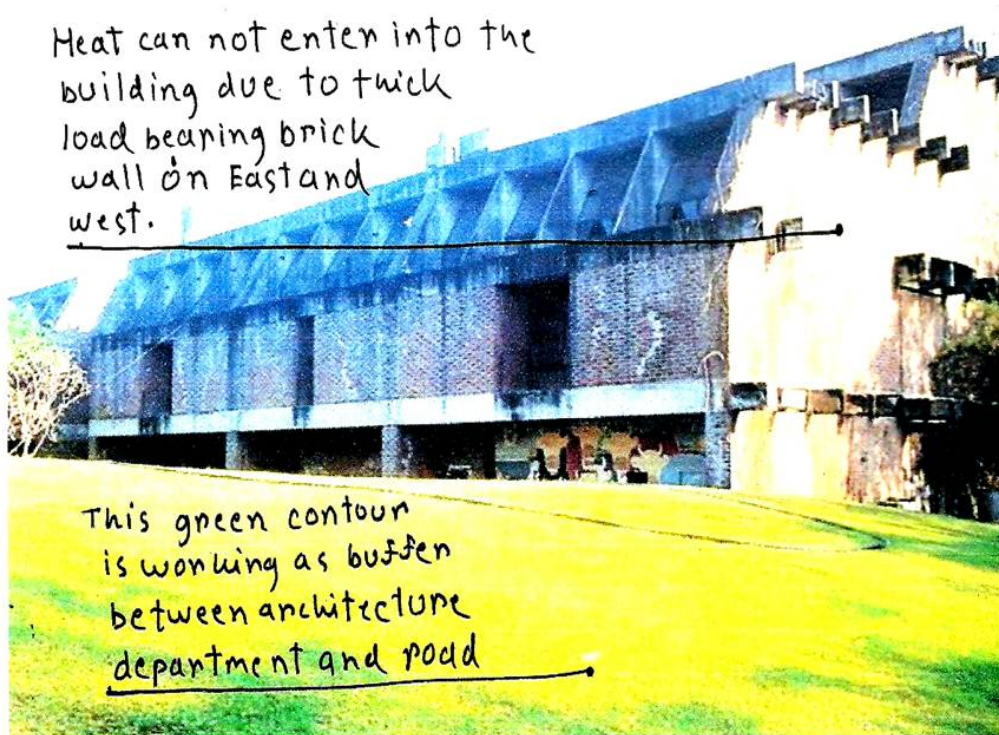 Heat can not enter into the
building due to thick
load bearing brick
wall on East and
west.
This green contour
is working as buffer
between architecture
department and road